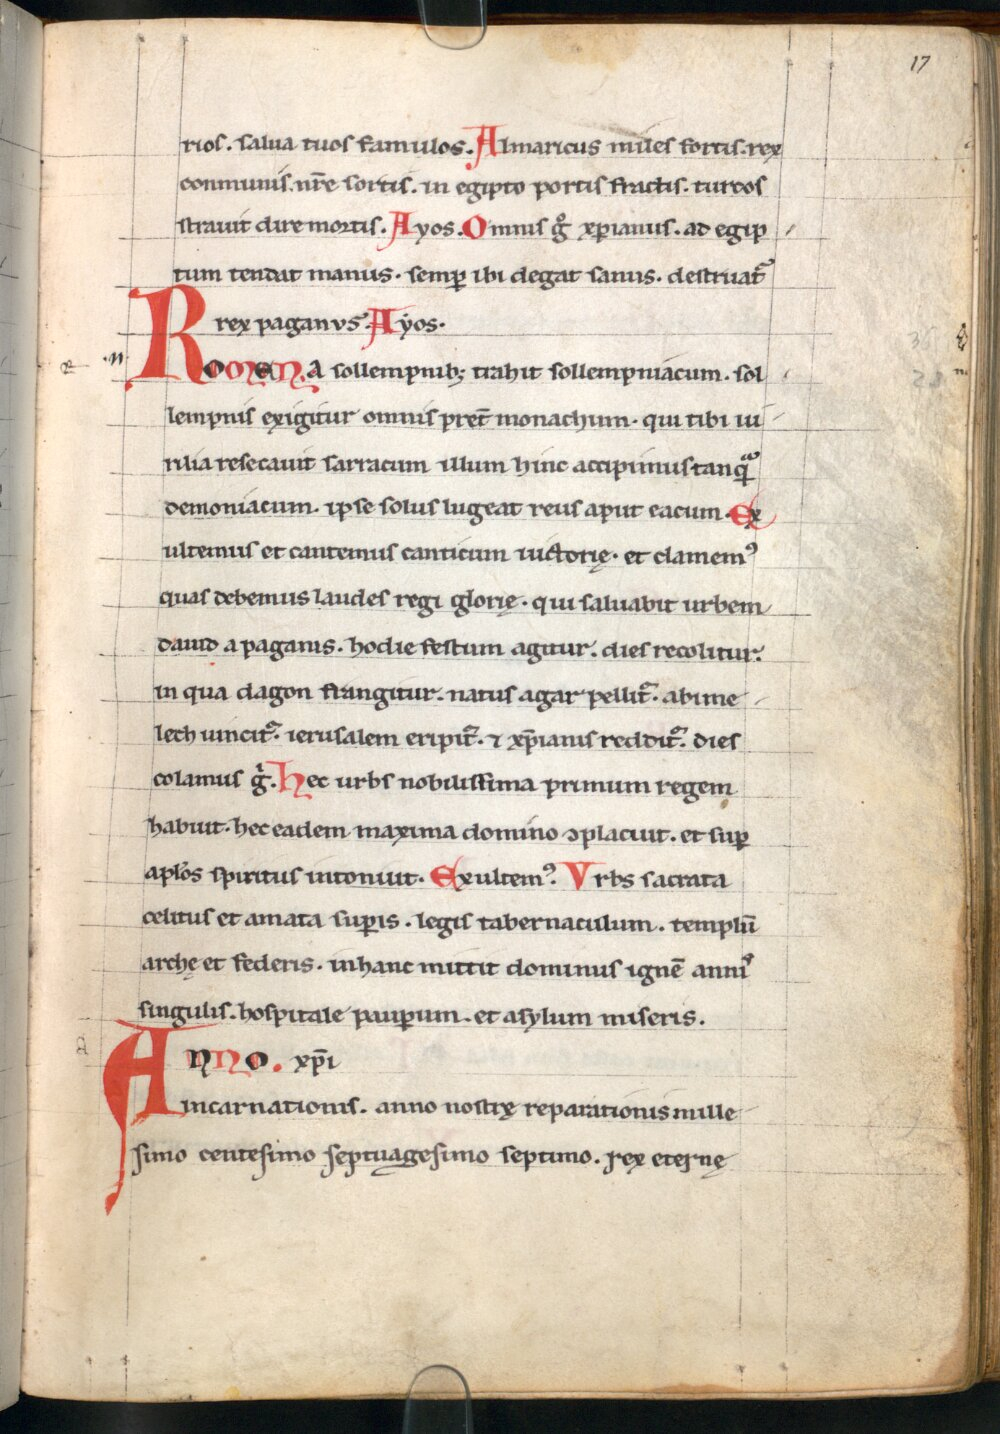 17
rios. salua tuos famulos. Almaricus miles fortis. rex
conmunis. nr̄e sortis. in egipto portis fractis. turcos
strauit dire mortis. Ayos. Omnis gͦ xp̄ianus. ad egip
tum tendat manus. semꝑ ibi degat sanus. destruat᷑
rex paganvs. Ayos.
Romana sollempnibꝫ trahit sollempniacum. sol
lempnis exigitur omnis pret̄ monachum. qui tibi ui
rilia resecauit sarracum illum hinc accipimus tanqͣ̄
demoniacum. ipse solus lugeat reus aput eacum. Ex
ultemus et cantemus canticum uictorię. et clamemꝰ
quas debemus laudes regi glorię. qui saluabit urbem
dauid a paganis. hodie festum agitur. dies recolitur.
in qua dagon frangitur. natus agar pellit᷑. abime
lech uincit᷑. ierusalem eripit᷑. ⁊ xp̄ianis reddit᷑. dies
colamus gͥ. Hec urbs nobilissima primum regem
habuit. hec eadem maxima domino ↄplacuit. et suꝑ
apl̄os spiritus intonuit. Exultemꝰ. Vrbs sacrata
celitus et amata suꝑis. legis tabernaculum. templū
archę et federis. inhanc mittit dominus ignē annīͦ
singulis. hospitale pauꝑum. et asylum miseris.
Anno. xp̄i
incarnationis. anno nostrę reparationis mille
simo centesimo septuagesimo septimo. rex eternę